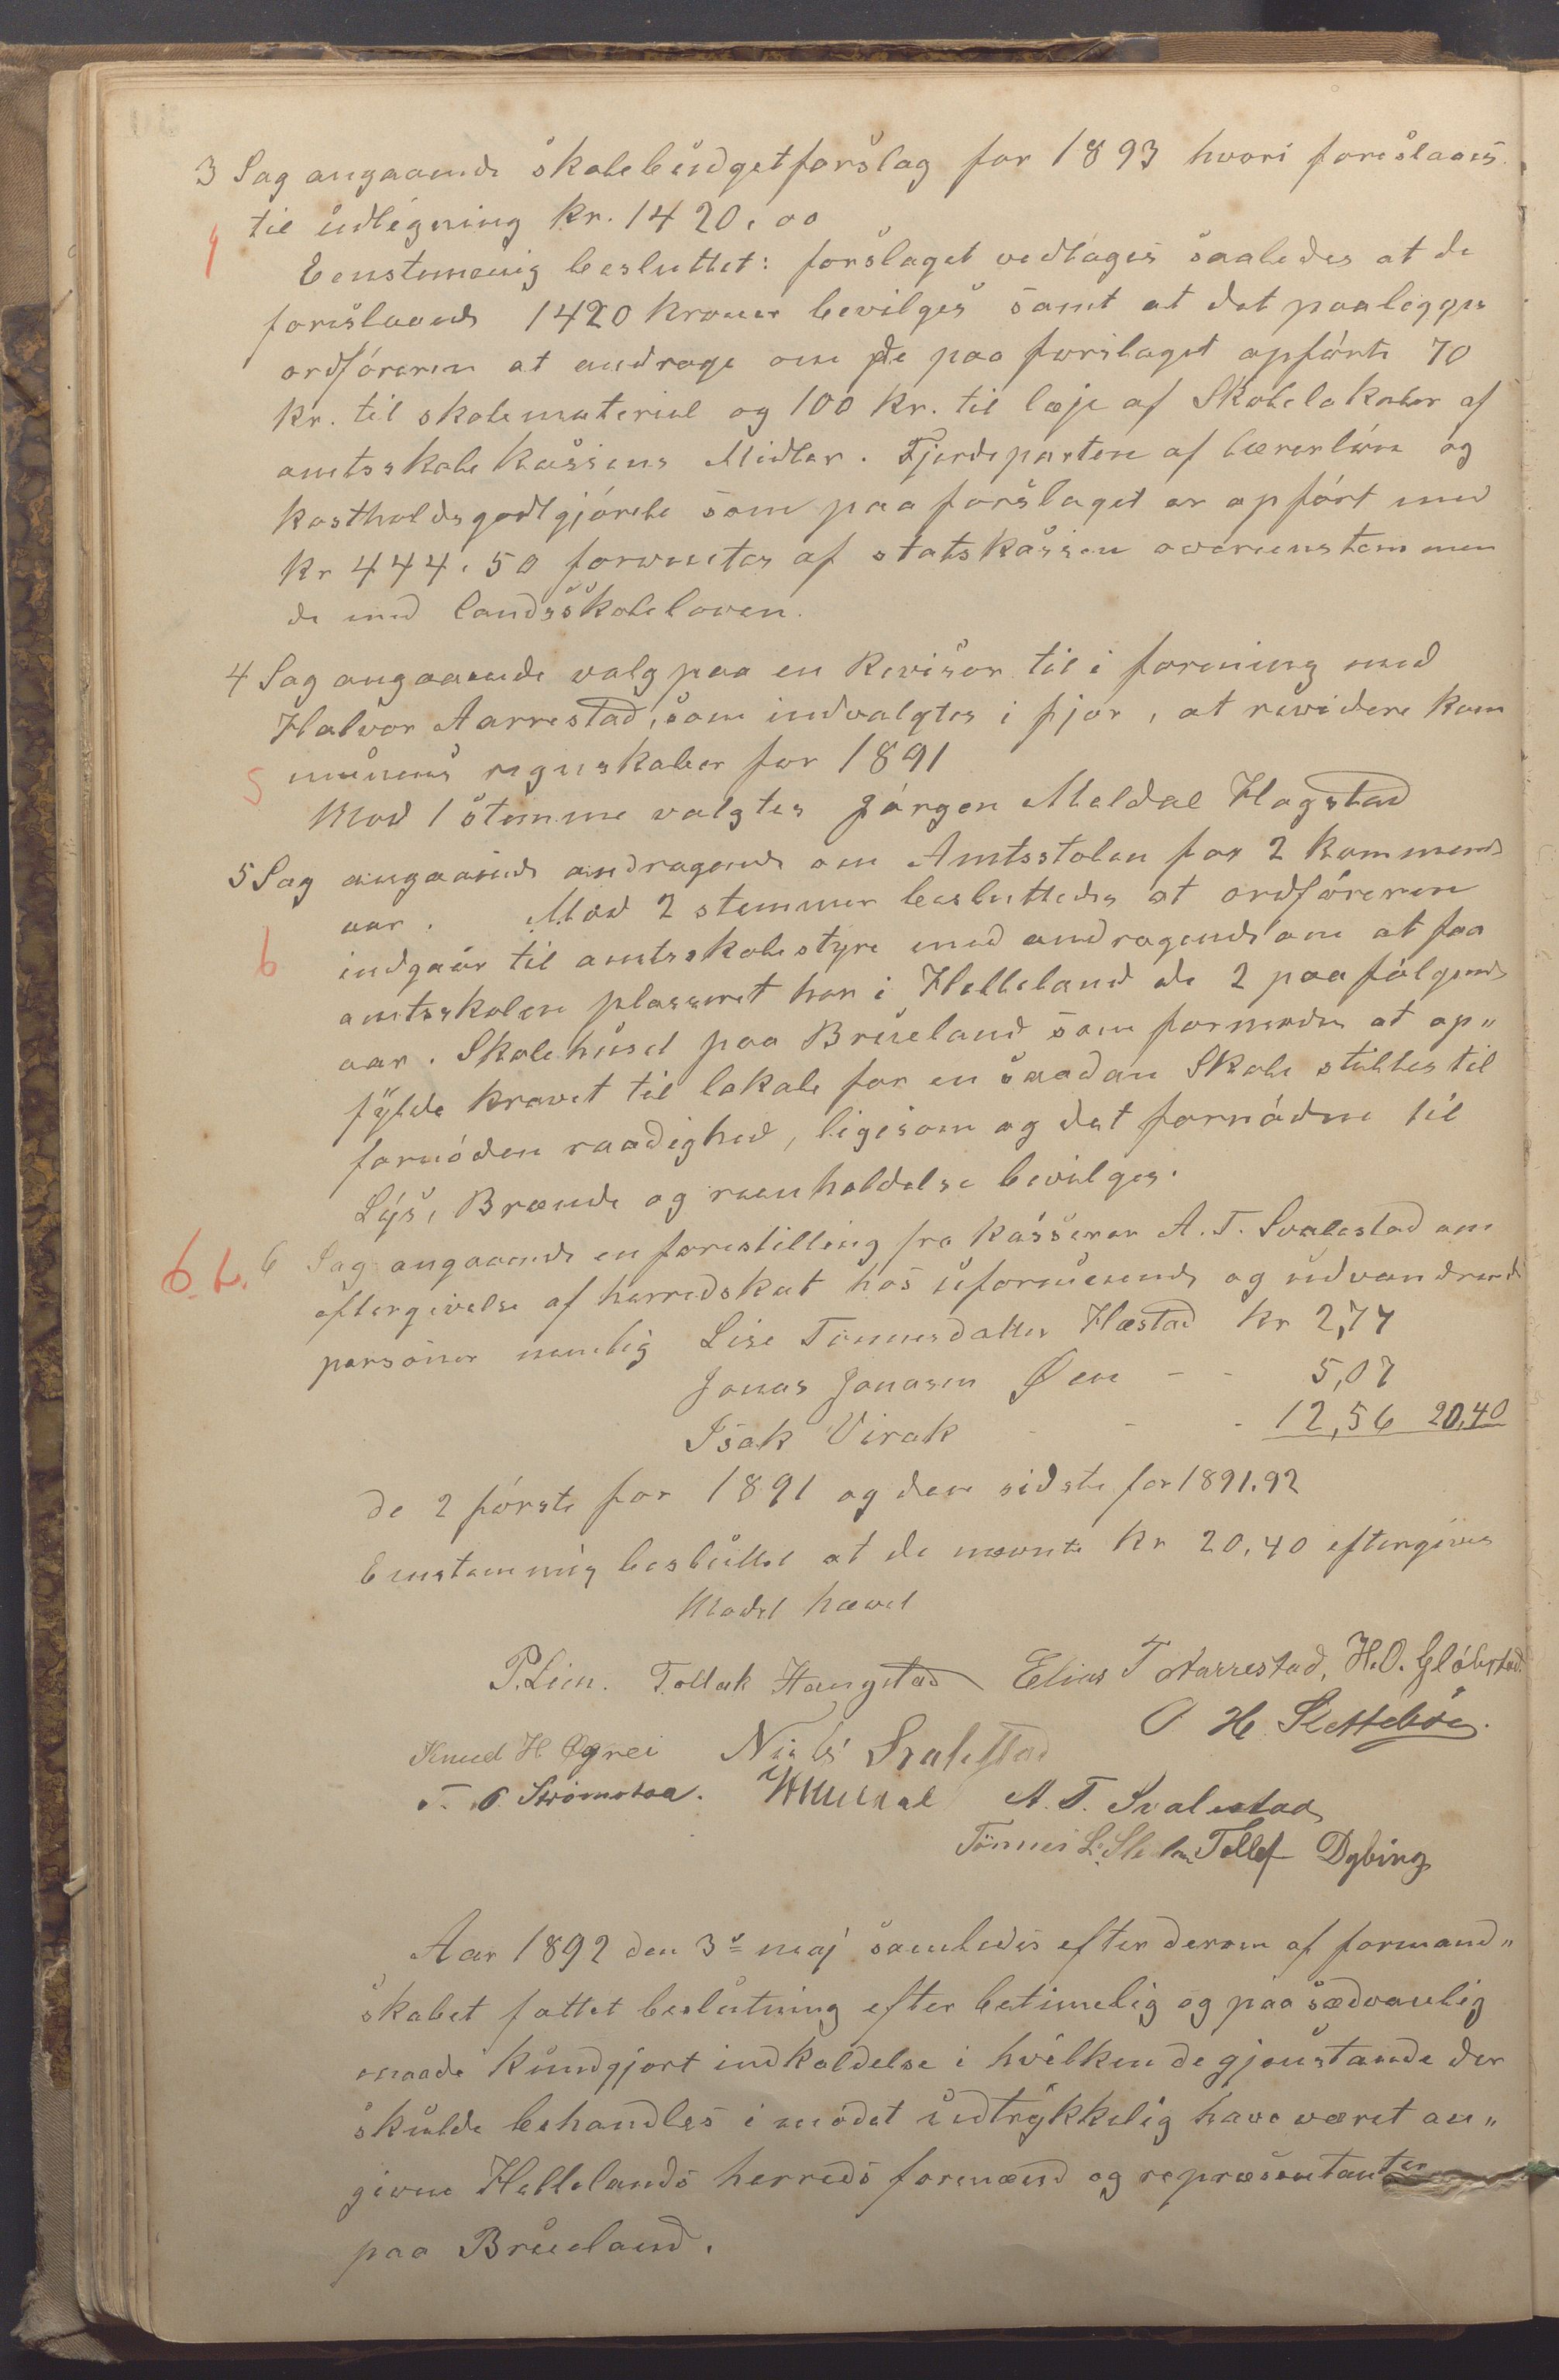 3 Sag angaaende skolebudgetforslag for 1893 hvori foreslaaes
til udligning kr. 1420,00
4
Eenstemmig besluttet: forslaget vedtages saaledes at de
foreslaaede 1420 kroner bevilges samt at det paalegges
ordføreren at andrage om de paa forslaget opførte 70
kr. til skolemateriel og 100 kr. til leje af Skolelokaler af
amtsskolekassens Midler. Fjerdeparten af lærerløn og
kostholdsgodtgjørelse som paa forslaget er opført med
kr 444,50 forventes af statskassen overensstemmen
de med landsskoleloven.
4 Sag angaaende valg paa en Revisor til i forening med
Halvor Aarrestad, som indvalgtes i fjor, at revidere kom
5 munens regnskaber for 1891
Mod 1 stemme valgtes Jørgen Meldal Hogstad
5 Sag angaaende andragende om Amtsskolen for 2 kommende
aar. Mod 2 stemmer besluttedes at ordføreren
6 indgaar til amtsskolestyre med andragende om at faa
amtsskolen plasseret her i Helleland de 2 paafølgende
aar. Skolehuset paa Brueland som formodes at op„
fylde kravet til lokale for en saadan Skole stilles til
fornøden raadighed, ligesom og det fornødne til
Lys, Brænde og reenholdelse bevilges.
6.b. 6 Sag angaaende en forestilling fra kasserer A. T. Svalestad om
eftergivelse af herredskat hos uformuende og udvandrende
personer nemlig Lise Tønnesdatter Hæstad kr 2,77
Jonas Jonasen Øen - - 5,07
Isak Virak - - 12,56 20,40
de 2 første for 1891 og den sidste for 1891.92
Eenstemmig besluttet at de nævnte kr 20,40 eftergives
Mødet hævet
P. Lien. Tollak Haugstad Elias T Aarrestad, H. O.
O H Slettebøe.
Knud H Øgrei Niels Svalestad
T. O. Strømstad. A. T. Svalestad
Tønnes L. Tellef Dybing
Aar 1892 den 3e maj samledes efter derom af formand„
skabet fattet beslutning efter betimelig og paa sædvanlig
maade kundgjort indkaldelse i hvilken de gjenstande der
skulde behandles i mødet udtrykkelig have været an„
givne Hellelands herreds formænd og repræsentanter
paa Brueland.